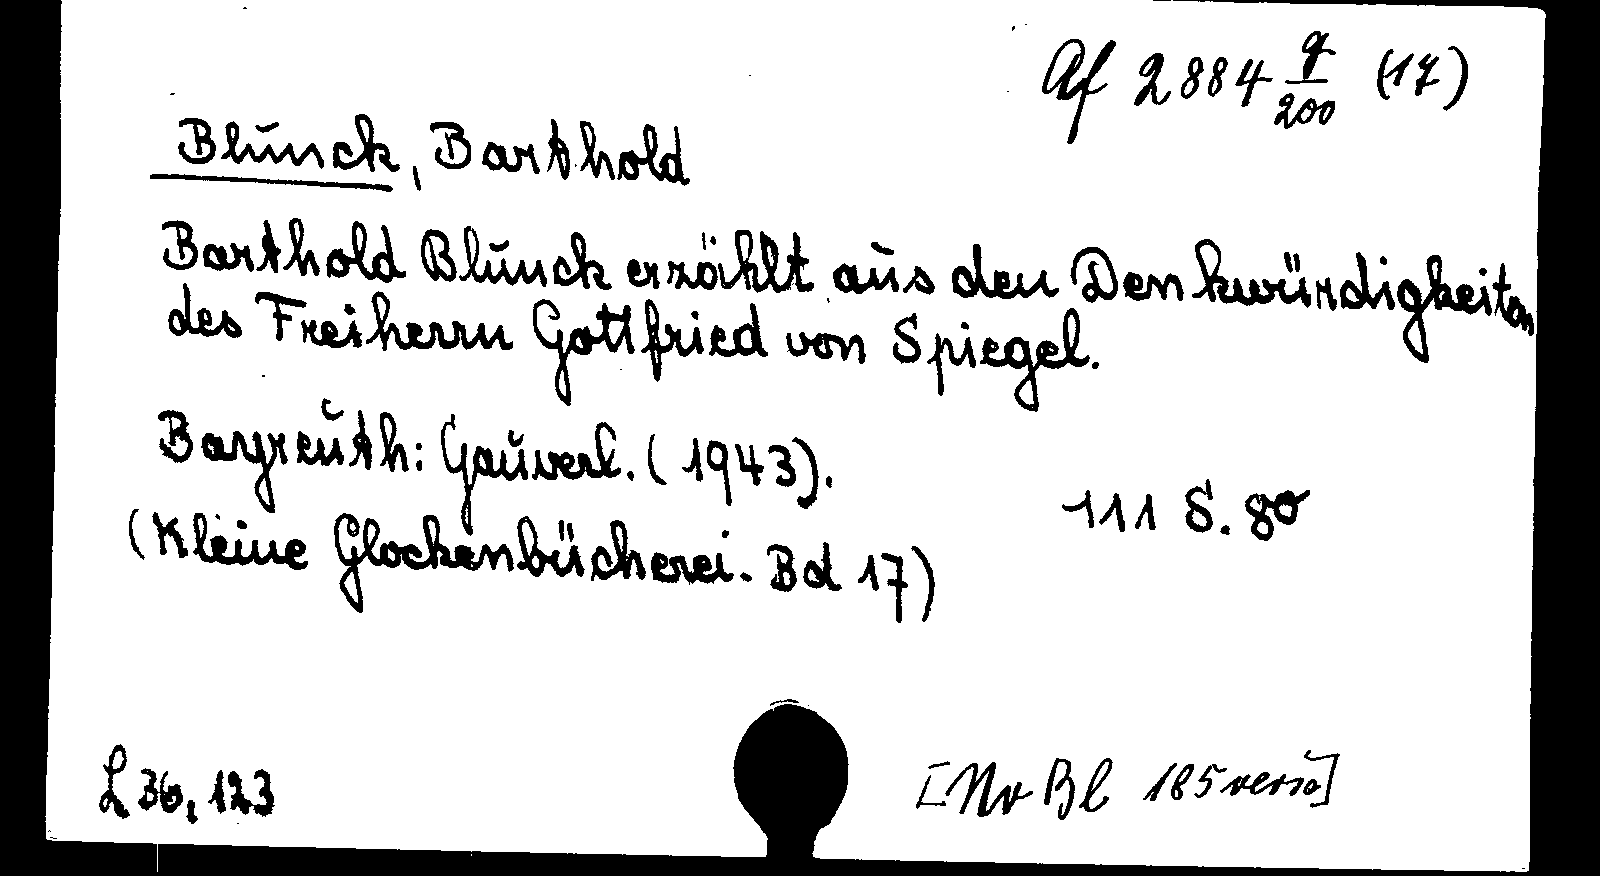 Af 2884 q/200 (17)
Blunck, Barthold
Barthold Blunck erzählt aus den Denkwürdigkeiten
des Freiherrn Gottfried von Spiegel.
Bayreuth: Gauverl. (1943).
111 S. 8°
(Kleine Glockenbücherei. Bd 17)
L 36, 123
[Nv Bl 185 verso]